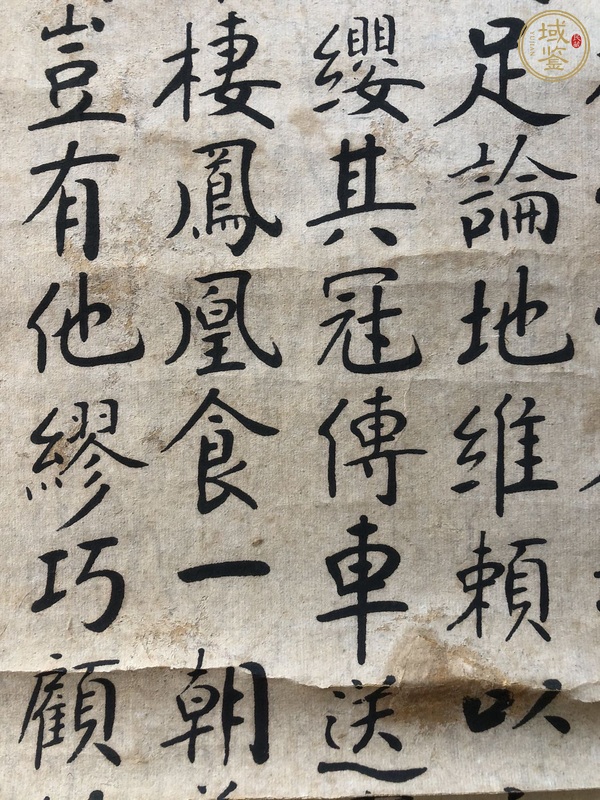 足論地維賴以
纓其冠傳車送
棲鳳凰食一朝
豈有他繆巧顧
域鑒